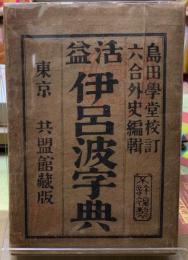 島田學堂校訂
六合外史編輯
活益
伊呂波字典
東京 共盟館藏版
不許複製